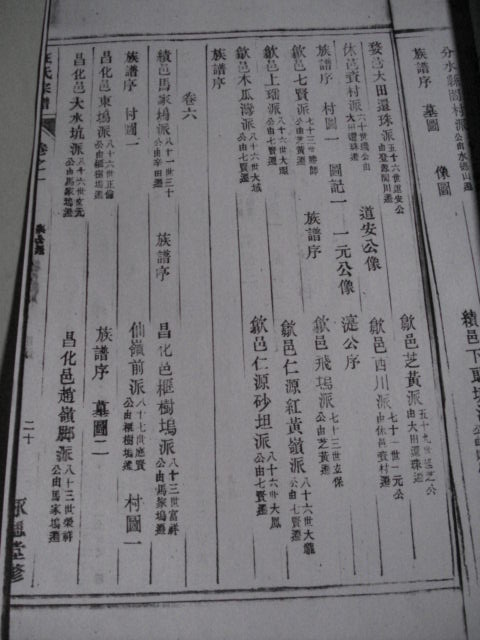 分水縣閻村派公由水𡶶山遷
族譜序 墓圖 像圖
績邑下頭塢派
婺邑大田還珠派五十六世道安公由登源閃川遷 道安公像
歙邑芝黃派五十九世公由大田還珠遷
休邑資村派六十世公由大田還珠遷
歙邑西川派七十一世一元公公由休邑資村遷
族譜序 村圖一 圖記一 一元公像
歙邑七賢派七十三世勝師公由芝黃遷 族譜序 淀公序
歙邑飛塢派七十三世亥保公由芝黃遷
歙邑上璠派八十六世大公由七賢遷
歙邑仁源紅黃嶺派八十六世大龍公由七賢遷
歙邑木瓜灣派八十六世大域公由七賢遷
歙邑仁源砂坦派八十六世大鳳公由七賢遷
族譜序
卷六
績邑馬家塢派八十一世三十公由莘田遷 族譜序
昌化邑櫃樹塢派八十三世富祥公由馬家塢遷
族譜序 村圖一
仙嶺前派八十七世應賢公由櫃樹塢遷 村圖一
昌化邑東塢派八十六世正倫公由櫃樹塢遷
族譜序 墓圖二
昌化邑大水坑派八十六世文元公由馬家塢遷
昌化邑趙嶺腳派八十三世榮祥公由馬家塢遷
氏宗譜 卷之一 二十